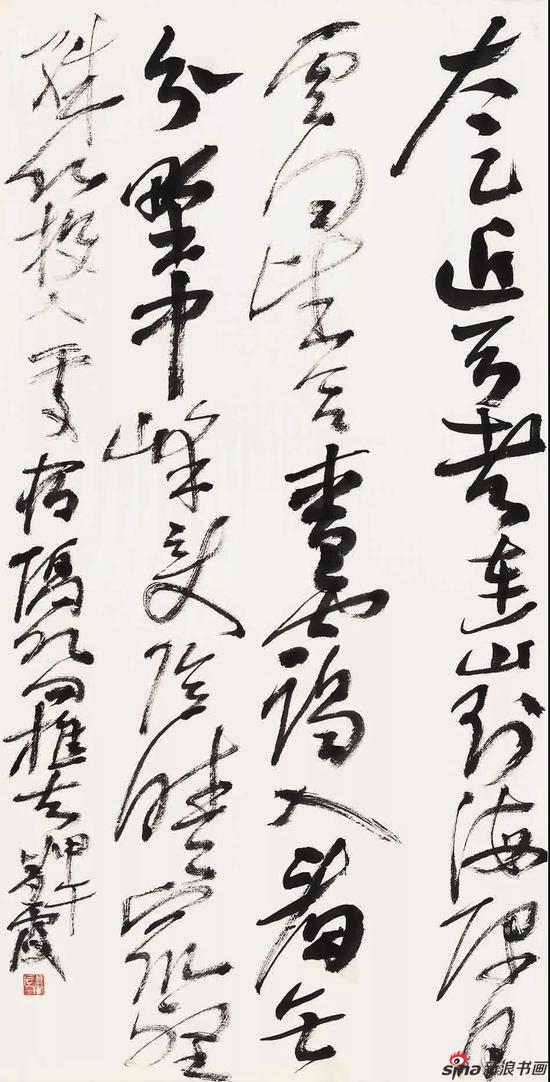 太乙近天都連山到海隅白
雲回望合青靄入看無
分野中峰變陰晴眾壑
殊欲投人處宿隔水問樵夫
甲午
霞
sina新浪书画